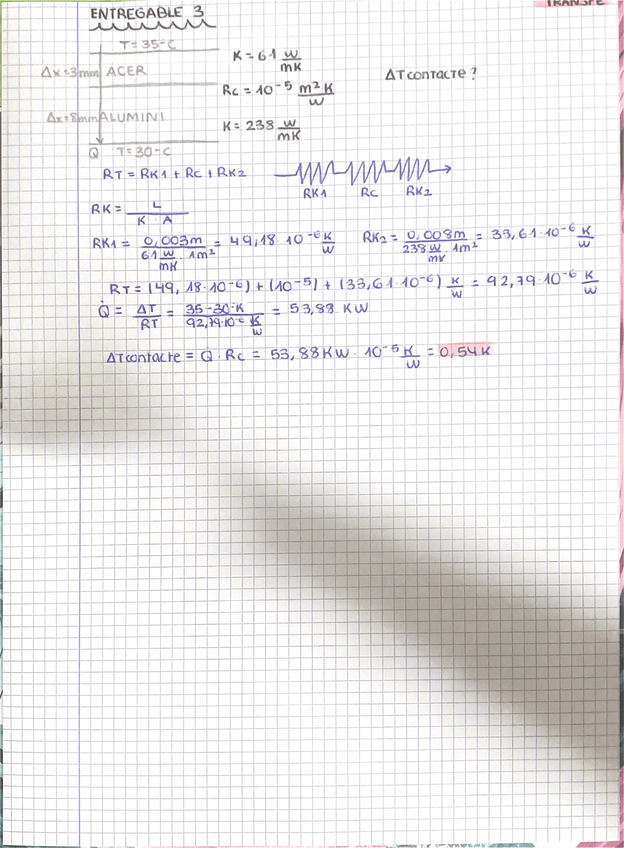 TRANSFE
ENTREGABLE 3
T = 35ºC
K = 61 W/mK
Δx = 3mm ACER
ΔT contacte ?
Rc = 10⁻⁵ m²K/W
Δx = 8mm ALUMINI
K = 238 W/mK
Q̇ T = 30ºC
RT = RK1 + Rc + RK2
RK1 Rc RK2
RK = L/(K · A)
RK1 = 0,003m/(61 W/mK · 1m²) = 49,18·10⁻⁶ K/W RK2 = 0,008m/(238 W/mK · 1m²) = 33,61·10⁻⁶ K/W
RT = (49,18·10⁻⁶) + (10⁻⁵) + (33,61·10⁻⁶) K/W = 92,79·10⁻⁶ K/W
Q̇ = ΔT/RT = 35-30 K/92,79·10⁻⁶ K/W = 53,88 KW
ΔT contacte = Q̇ · Rc = 53,88 KW · 10⁻⁵ K/W = 0,54 K